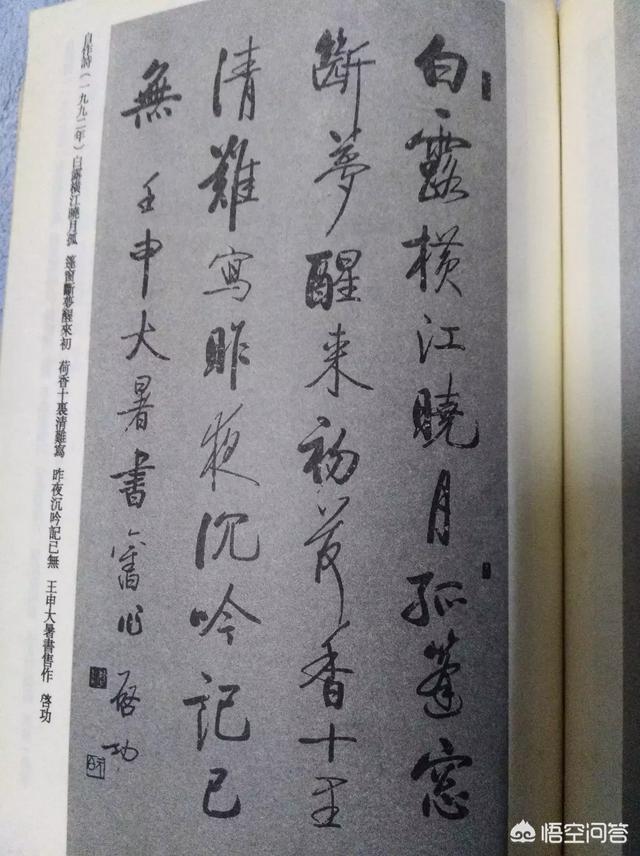 白露橫江曉月孤篷窓
斷夢醒来初荷香十里
清難寫昨夜沉吟記已
無 壬申大暑書舊作 啟功
自作詩（一九九二年）白露橫江曉月孤 篷窗斷夢醒來初 荷香十裏清難寫 昨夜沉吟記已無 王申大暑書售作 啓功
悟空问答